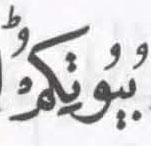 بُيُوْتِكُمْؕ